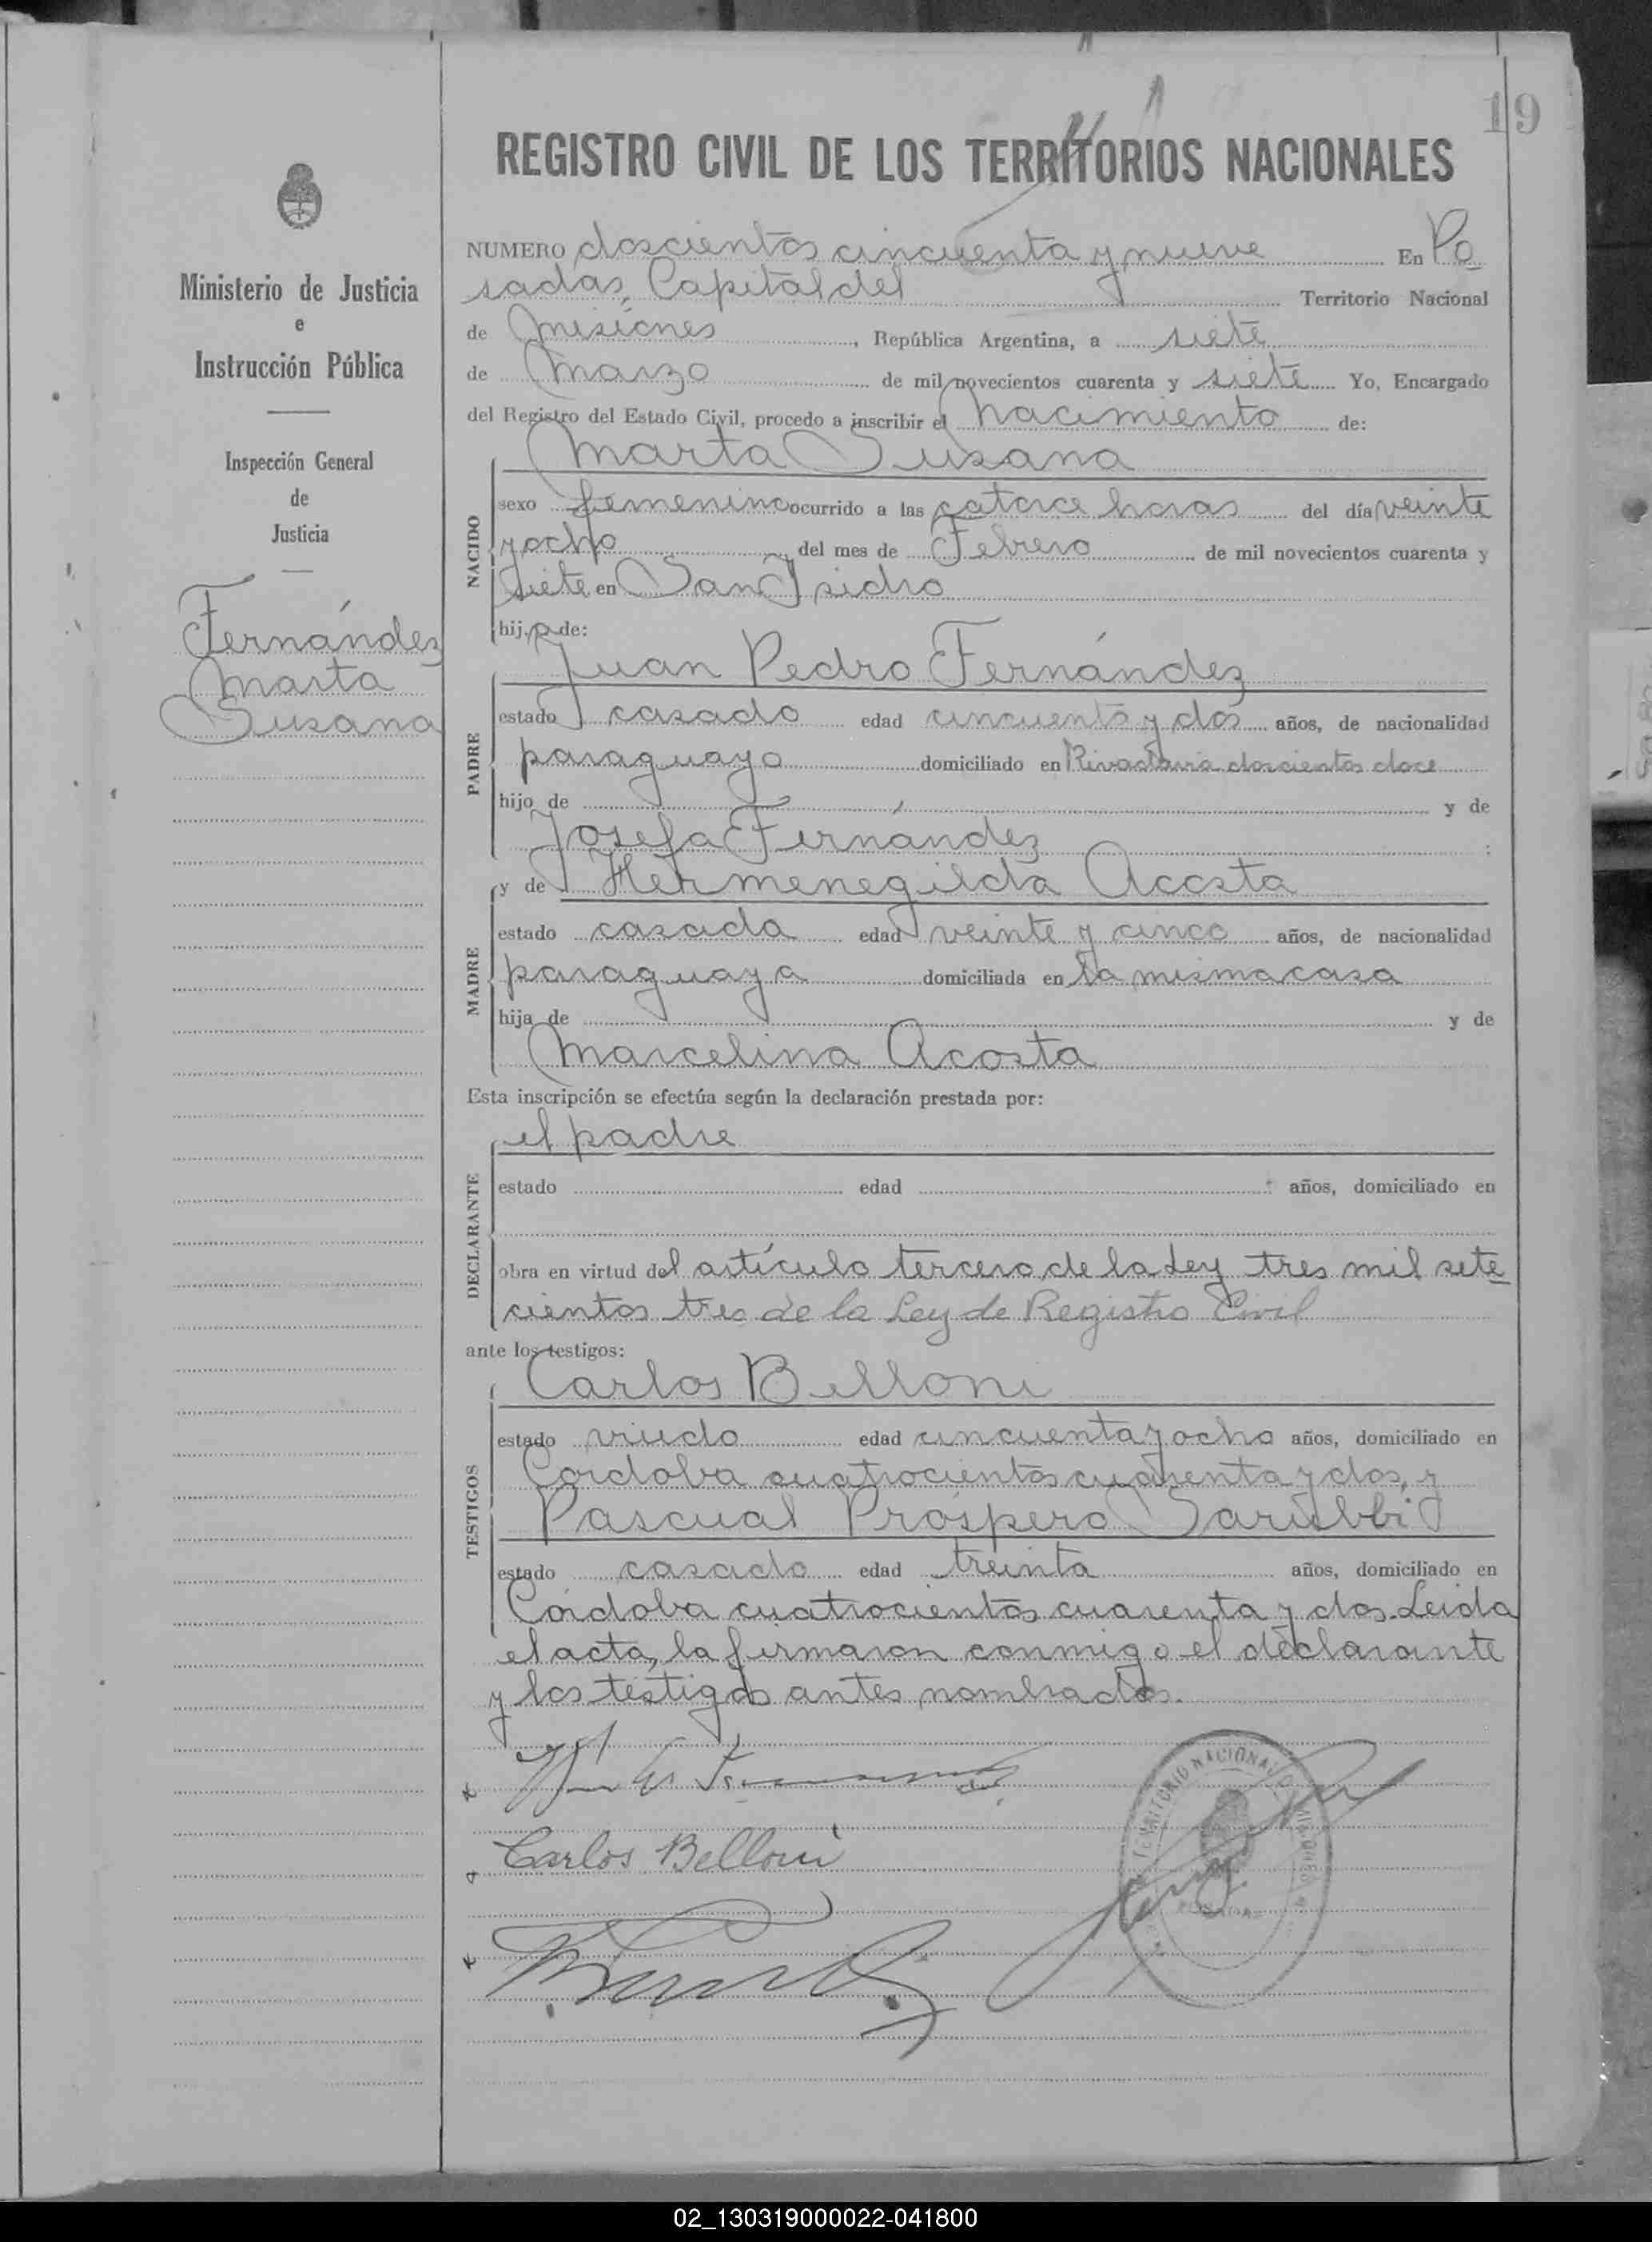 19
REGISTRO CIVIL DE LOS TERRITORIOS NACIONALES
Ministerio de Justicia
e
Instrucción Pública
Inspección General
de
Justicia
Fernández
Marta
Susana
NUMERO doscientos cincuenta y nueve En Po
sadas, Capital del Territorio Nacional
de Misiones, República Argentina, a siete
de Marzo de mil novecientos cuarenta y siete Yo, Encargado
del Registro del Estado Civil, procedo a inscribir el nacimiento de:
Marta Susana
NACIDO
sexo femenino ocurrido a las catorce horas del día veinte
y ocho del mes de Febrero de mil novecientos cuarenta y
siete en San Isidro
hija de:
Juan Pedro Fernández
PADRE
estado casado edad cincuenta y dos años, de nacionalidad
paraguayo domiciliado en Rivadavia doscientos doce
hijo de y de
Josefa Fernández :
y de Hermenegilda Acosta
MADRE
estado casada edad veinte y cinco años, de nacionalidad
paraguaya domiciliada en la misma casa
hija de y de
Marcelina Acosta
Esta inscripción se efectúa según la declaración prestada por:
el padre
DECLARANTE
estado edad años, domiciliado en
obra en virtud del artículo tercero de la Ley tres mil sete
cientos tres de la Ley de Registro Civil
ante los testigos:
Carlos Belloni
TESTIGOS
estado viudo edad cincuenta y ocho años, domiciliado en
Córdoba cuatrocientos cuarenta y dos, y
Pascual Próspero Sarubbi
estado casado edad treinta años, domiciliado en
Córdoba cuatrocientos cuarenta y dos. Leida
el acta, la firmaron conmigo el declarante
y los testigos antes nombrados.
Carlos Belloni
TERRITORIO NACIONAL
POSADAS
02_130319000022-041800